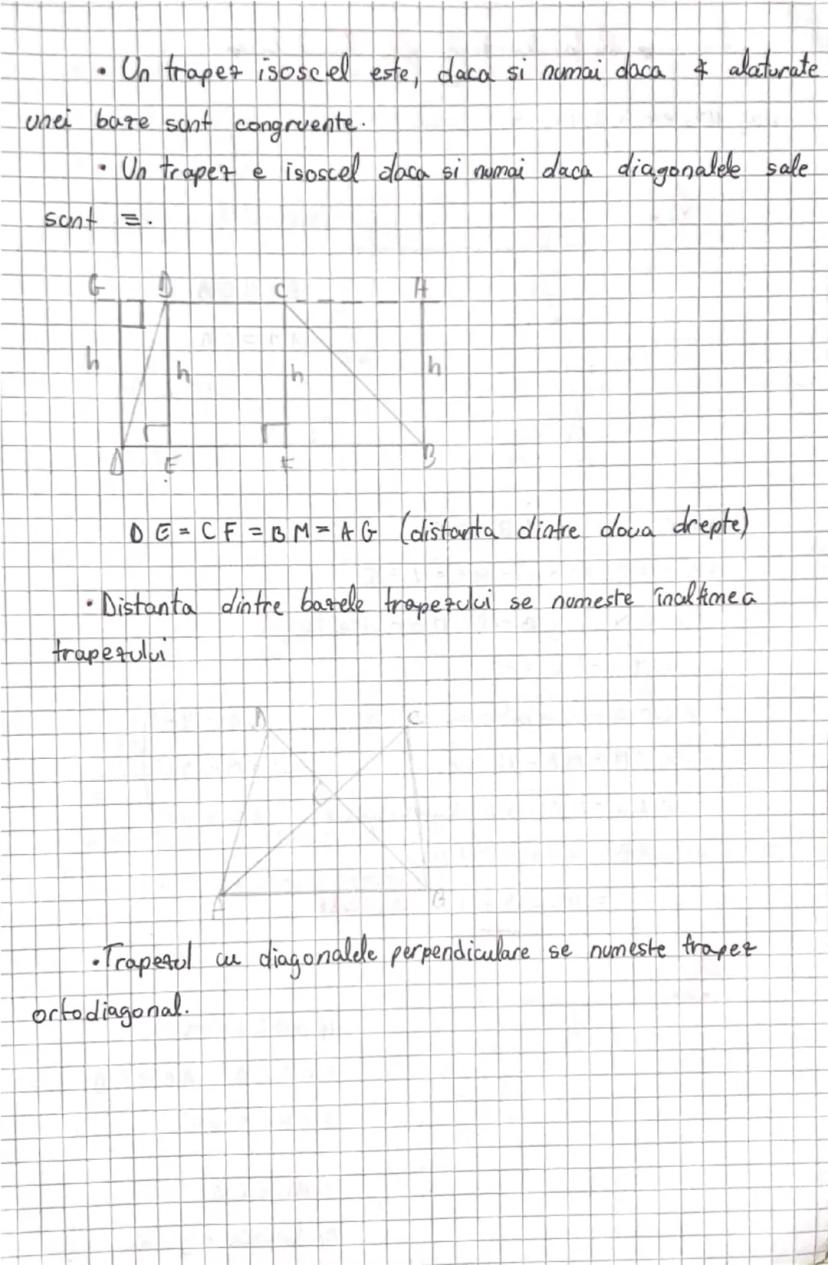 • Un trapez isoscel este, daca si numai daca ∢ alaturate
unei baze sunt congruente.
• Un trapez e isoscel daca si numai daca diagonalele sale
sunt ≡.
G D C H
h h h h
E F B
D E = C F = B M = A G (distanta dintre doua drepte)
• Distanta dintre bazele trapezului se numeste inaltimea
trapezului
D C
A B
• Trapezul cu diagonalele perpendiculare se numeste trapez
ortodiagonal.